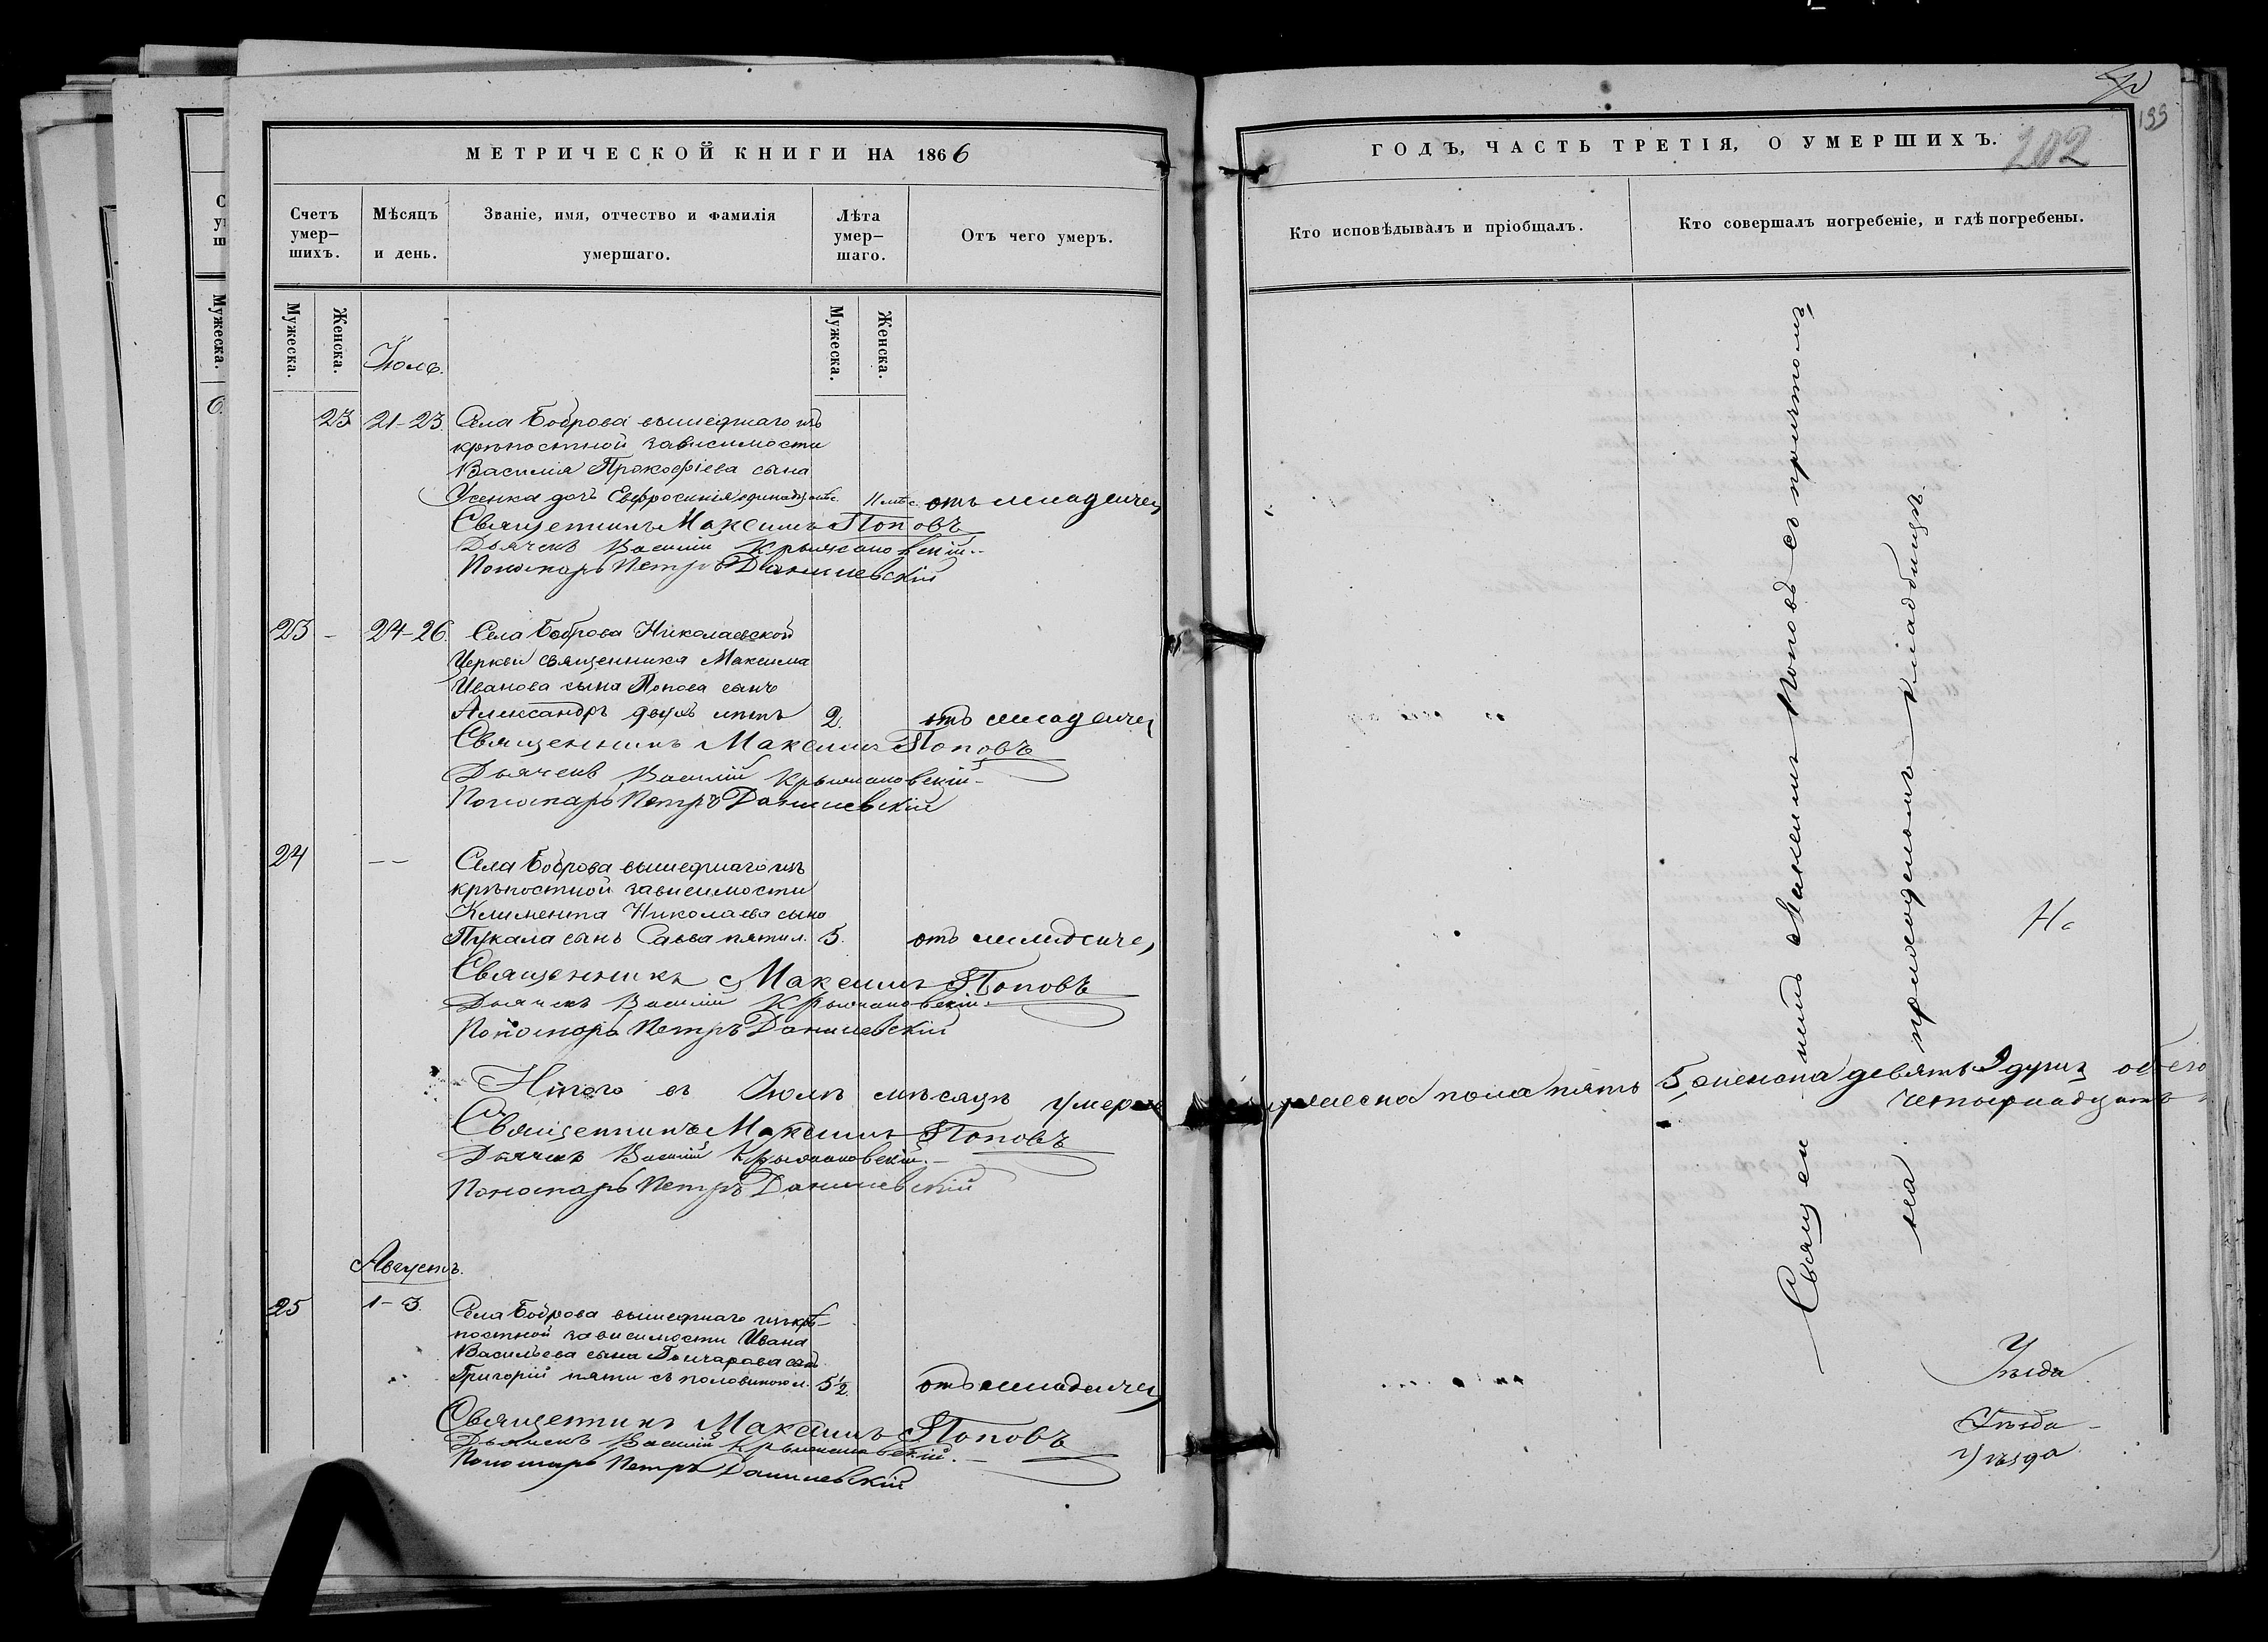 МЕТРИЧЕСКОЙ КНИГИ НА 1866
Счетъ умер– шихъ.
Мѣсяцъ и день.
Званіе, имя, отчество и фамилія умершаго.
Лѣта умер– шаго.
Отъ чего умеръ.
Мужеска.
Женска.
Мужеска.
Женска.
Іюль.
23 21-23. Села Боброва вышедшаго изъ
крѣпостной зависимости
Василія Прокофіева сына
Усенка дочь Евфросинія 11 мѣс. отъ младенчес
Священникъ Максимъ Поповъ
Дьячекъ Василій Крыжановскій
Пономарь Петръ Данилевскій
23 – 24-26. Села Боброва Николаевской
Церкви священника Максима
Иванова сына Попова сынъ
Александръ двухъ лѣтъ 2. отъ младенчес
Священникъ Максимъ Поповъ
Дьячекъ Василій Крыжановскій
Пономарь Петръ Данилевскій
24 – – Села Боброва вышедшаго изъ
крѣпостной зависимости
Климента Николаева сына
Пукала сынъ Савва пяти л. 5. отъ младенчес
Священникъ Максимъ Поповъ
Дьячекъ Василій Крыжановскій
Пономарь Петръ Данилевскій
Итого въ Іюлѣ мѣсяцѣ умерло
Священникъ Максимъ Поповъ
Дьячекъ Василій Крыжановскій
Пономарь Петръ Данилевскій
Августъ.
25 1-3. Села Боброва вышедшаго изъ крѣ–
постной зависимости Ивана
Васильева сына Гончарова сынъ
Григорій пяти съ половиною л. 5½. отъ младенчес
Священникъ Максимъ Поповъ
Дьячекъ Василій Крыжановскій
Пономарь Петръ Данилевскій
199
ГОДЪ, ЧАСТЬ ТРЕТІЯ, О УМЕРШИХЪ.
202
Кто исповѣдывалъ и пріобщалъ.
Кто совершалъ погребеніе, и гдѣ погребены.
Священникъ Максимъ Поповъ съ причтомъ
на приходскомъ кладбищѣ.
мужеска пола пять 5, женска девять 9 душъ обоего
четырнадцать
Уѣзда
Уѣзда
Уѣзда